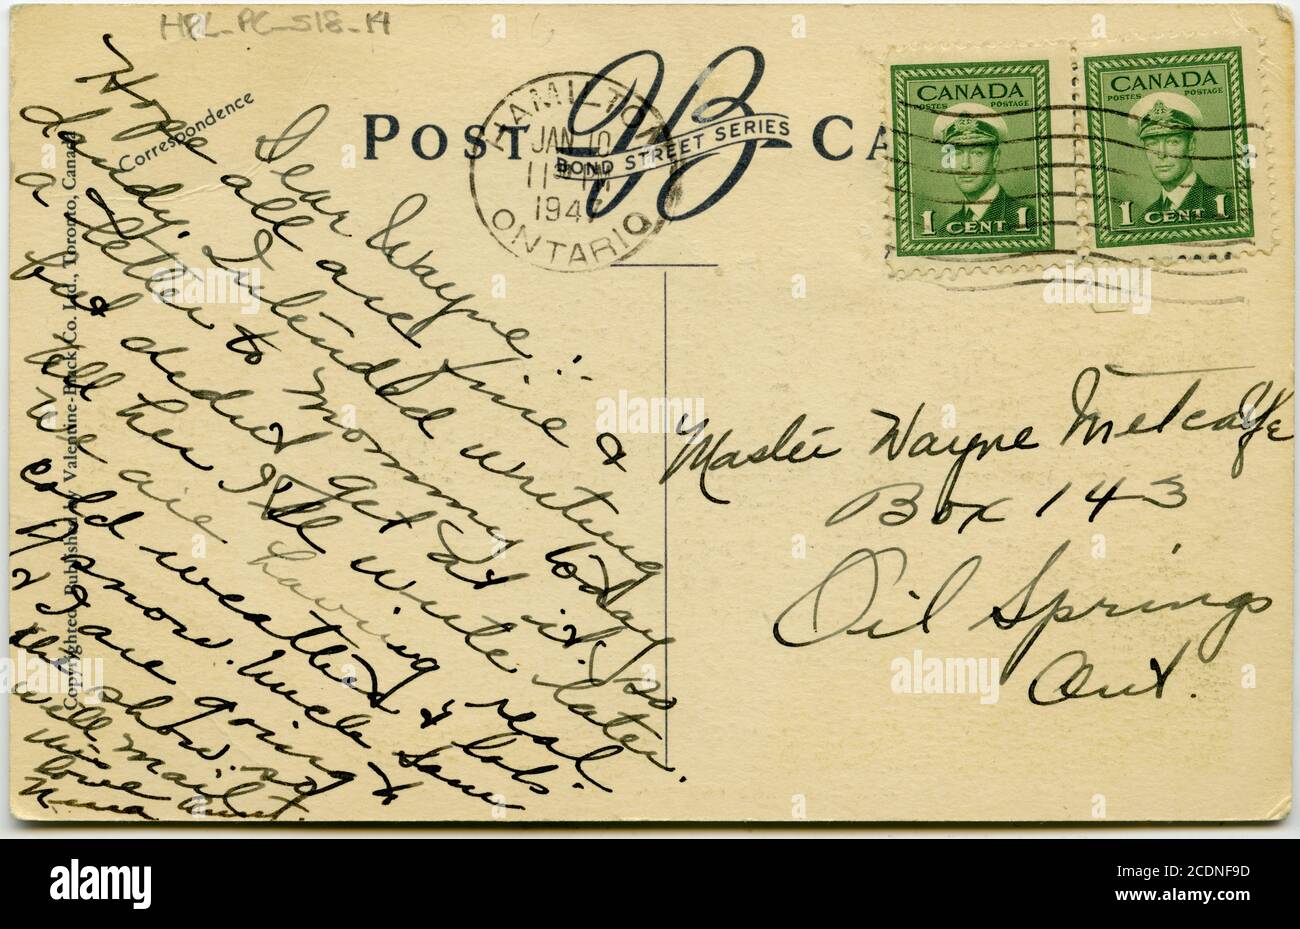 HPL-PC-518-14
Correspondence
POST CA
BOND STREET SERIES
HAMILTON
JAN 10
1947
ONTARIO
CANADA
POSTES POSTAGE
1 CENT 1
CANADA
POSTES POSTAGE
1 CENT 1
Dear Wayne:
Hope all are fine &
dandy. Intended writing
a letter to Mommy today
but didn't get at it, so
tell her I'll write later.
We are having real
cold weather & lots
of snow. Uncle Sam
& I are going to
the show. so
will mail
this
love Aunt
Nina
Copyrighted. Published by Valentine-Black Co. Ltd., Toronto, Canada
Master Wayne Metcalfe
Box 143
Oil Springs
Ont.
a alamy
alamy
Image ID: 2CDNF9D
www.alamy.com